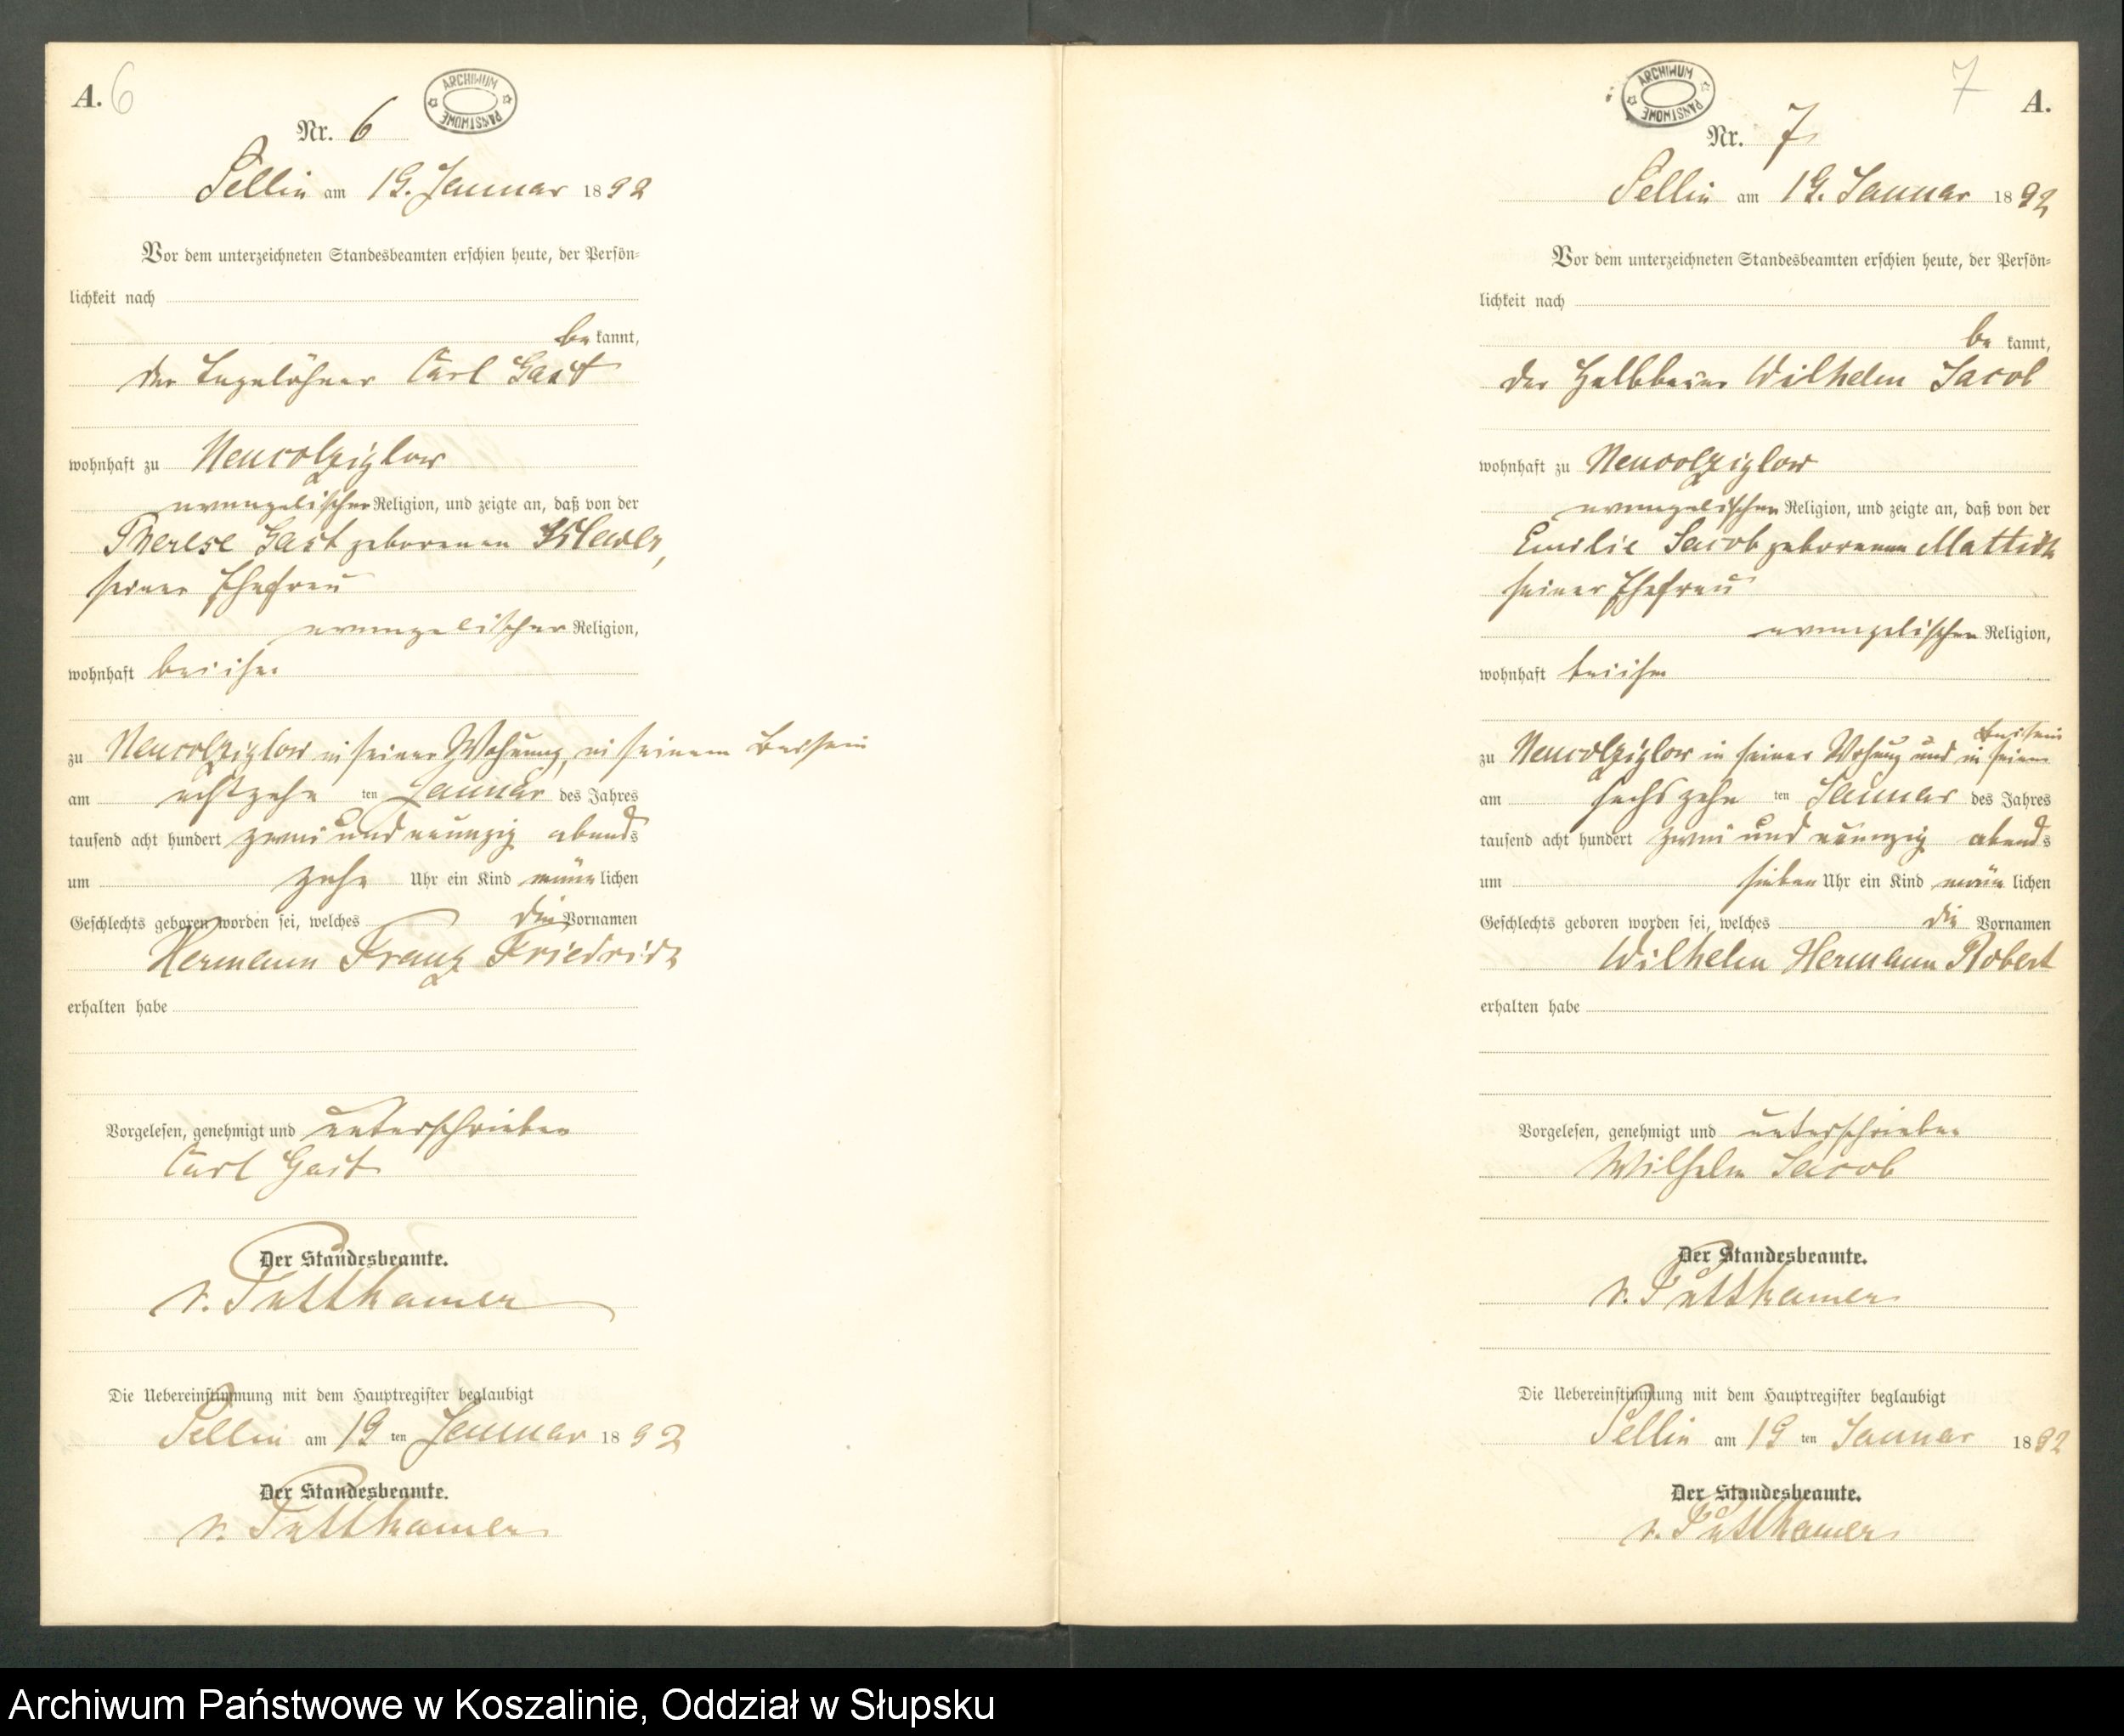 A. 6
ARCHIWUM PAŃSTWOWE
Nr. 6
Sellin am 19. Januar 1892
Vor dem unterzeichneten Standesbeamten erschien heute, der Persön-
lichkeit nach
bekannt,
der Tagelöhner Carl Gast
wohnhaft zu Neucolziglow
evangelischer Religion, und zeigte an, daß von der
Therese Gast geborenen
seiner Ehefrau
evangelischer Religion,
wohnhaft bei ihm
zu Neucolziglow in seiner Wohnung, in seinem Beisein
am achtzehn ten Januar des Jahres
tausend acht hundert zwei und neunzig abends
um zehn Uhr ein Kind männlichen
Geschlechts geboren worden sei, welches die Vornamen
Hermann Franz Friedrich
erhalten habe
Vorgelesen, genehmigt und unterschrieben
Carl Gast
Der Standesbeamte.
v. Puttkamer
Die Uebereinstimmung mit dem Hauptregister beglaubigt
Sellin am 19 ten Januar 1892
Der Standesbeamte.
v. Puttkamer
7 A.
ARCHIWUM PAŃSTWOWE
Nr. 7
Sellin am 19. Januar 1892
Vor dem unterzeichneten Standesbeamten erschien heute, der Persön-
lichkeit nach
bekannt,
der Halbbauer Wilhelm Jacob
wohnhaft zu Neucolziglow
evangelischer Religion, und zeigte an, daß von der
Emilie Jacob geborenen Mattick
seiner Ehefrau
evangelischer Religion,
wohnhaft bei ihm
Beisein
zu Neucolziglow in seiner Wohnung und in seinem
am sechszehn ten Januar des Jahres
tausend acht hundert zwei und neunzig abends
um sieben Uhr ein Kind männlichen
Geschlechts geboren worden sei, welches die Vornamen
Wilhelm Hermann Robert
erhalten habe
Vorgelesen, genehmigt und unterschrieben
Wilhelm Jacob
Der Standesbeamte.
v. Puttkamer
Die Uebereinstimmung mit dem Hauptregister beglaubigt
Sellin am 19 ten Januar 1892
Der Standesbeamte.
v. Puttkamer
Archiwum Państwowe w Koszalinie, Oddział w Słupsku